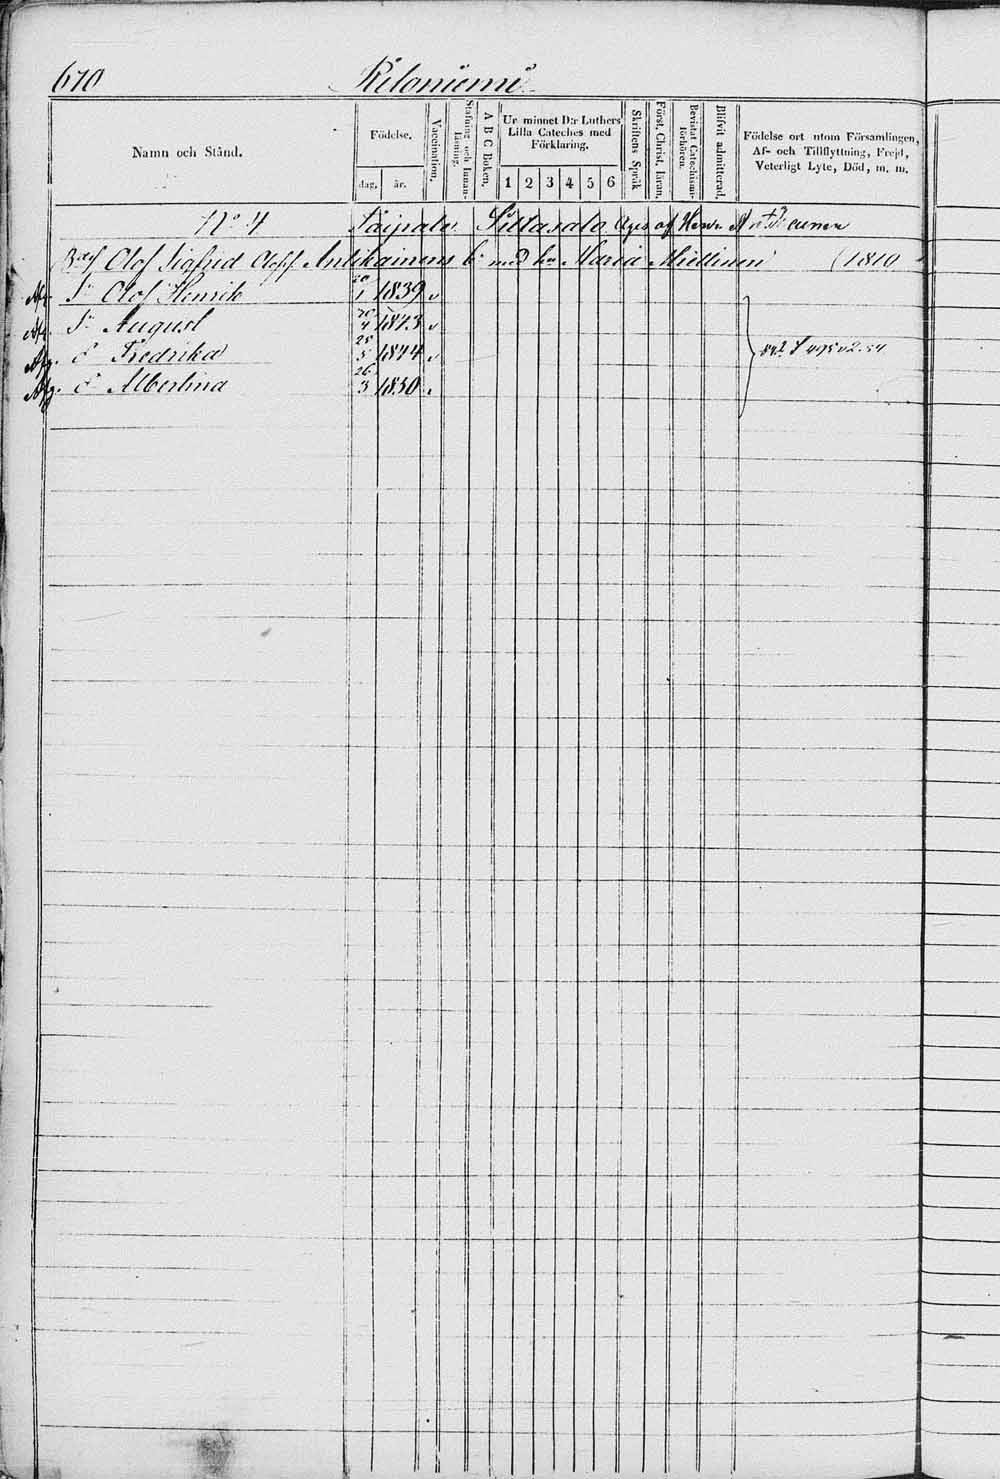 670 Kiloniemi
Namn och Stånd.
Födelse.
dag. år.
Vaccination.
Stafning och Innan-läsning.
A B C Boken.
Ur minnet D:r Luthers
Lilla Cateches med
Förklaring.
1 2 3 4 5 6
Skriftens Språk
Först. Christ. läran.
Bevistat Catechismi-förhören.
Blifvit admitterad.
Födelse ort utom Församlingen,
Af- och Tillflyttning, Frejd,
Veterligt Lyte, Död, m. m.
N:o 4 Saijpale Siltasalo Äges af Herr
Olof Sigfrid Olofss Antikainens b. med hu Maria Miettinen (1810
Afg. S. Olof Henrik 20/1 1839 v
Afg. S. August 20/4 1843 v
Afg. d Fredrika 25/5 1844 v
Afg. d Albertina 26/3 1850